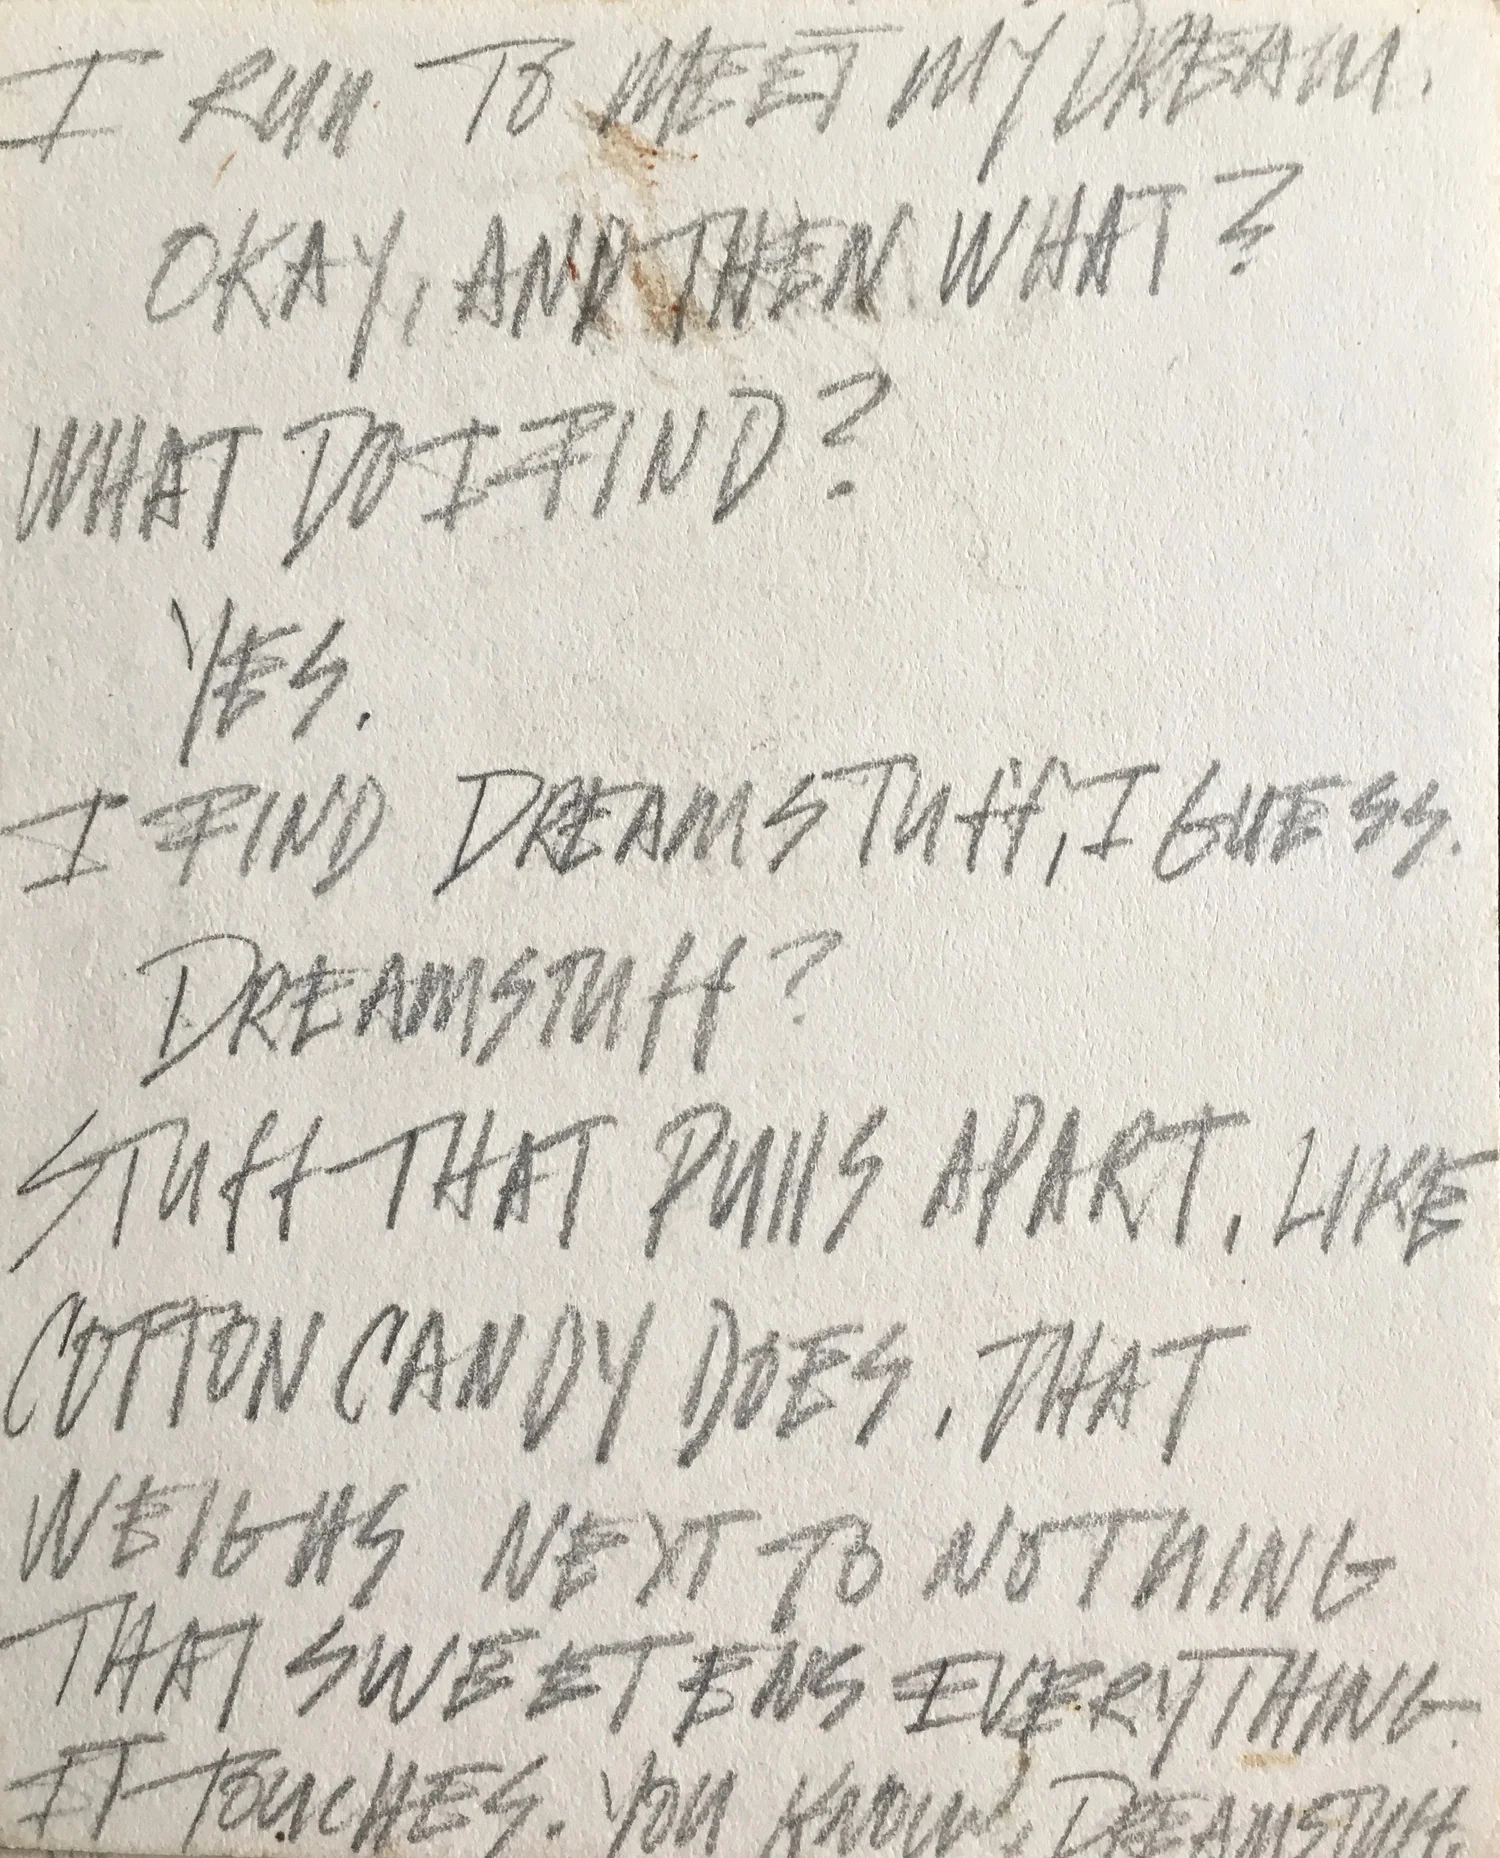 I RUN TO MEET MY DREAM.
OKAY, AND THEN WHAT?
WHAT DO I FIND?
YES.
I FIND DREAMSTUFF, I GUESS.
DREAMSTUFF?
STUFF THAT PULLS APART, LIKE
COTTON CANDY DOES, THAT
WEIGHS NEXT TO NOTHING
THAT SWEETENS EVERYTHING
IT TOUCHES. YOU KNOW, DREAMSTUFF.